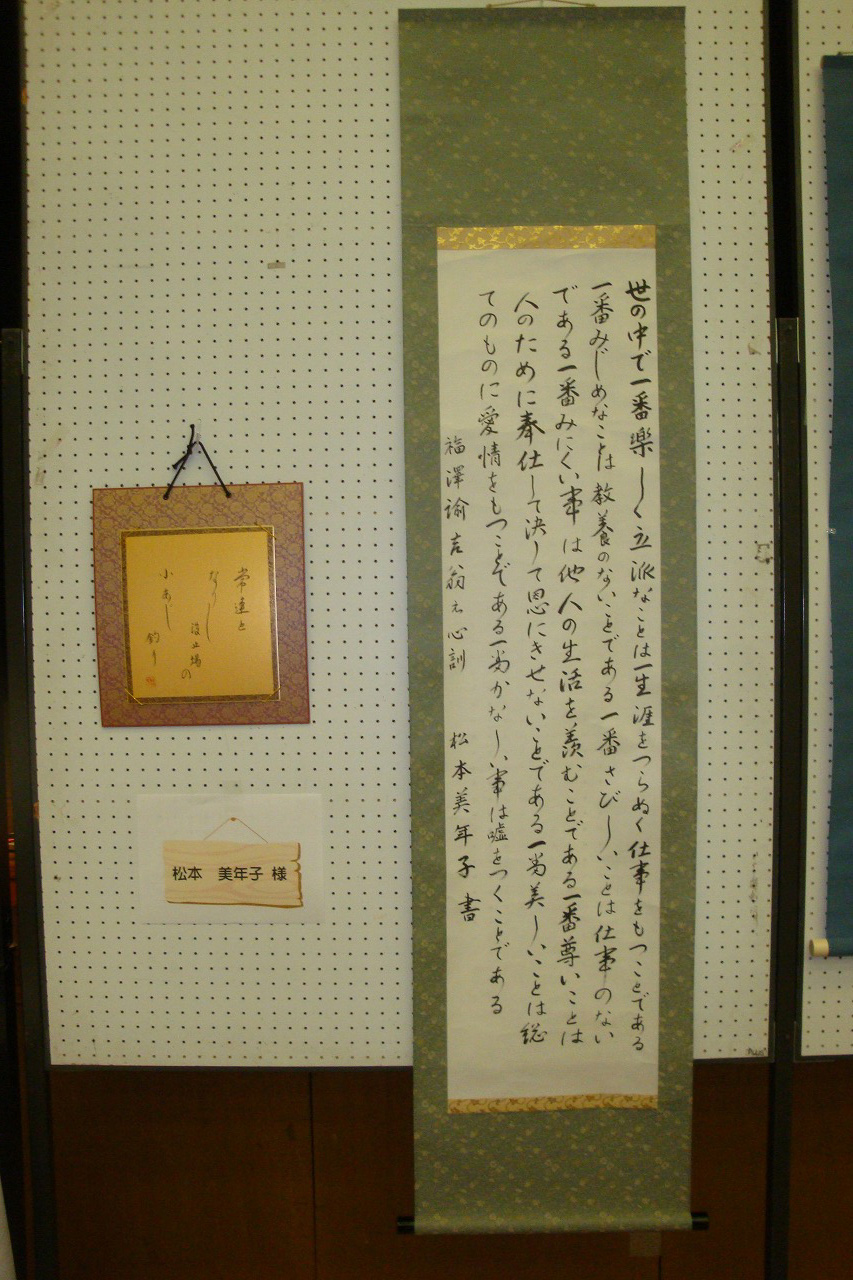 世の中で一番楽しく立派なことは一生涯をつらぬく仕事をもつことである
一番みじめなことは教養のないことである一番さびしいことは仕事のない
である一番みにくい事は他人の生活を羨むことである一番尊いことは
人のために奉仕して決して恩にきせないことである一番美しいことは総
てのものに愛情をもつことである一番かなしい事は嘘をつくことである
福澤諭吉翁 心訓 松本美年子書
常連と
なりし
波止場の
小あじ
釣り
松本 美年子 様